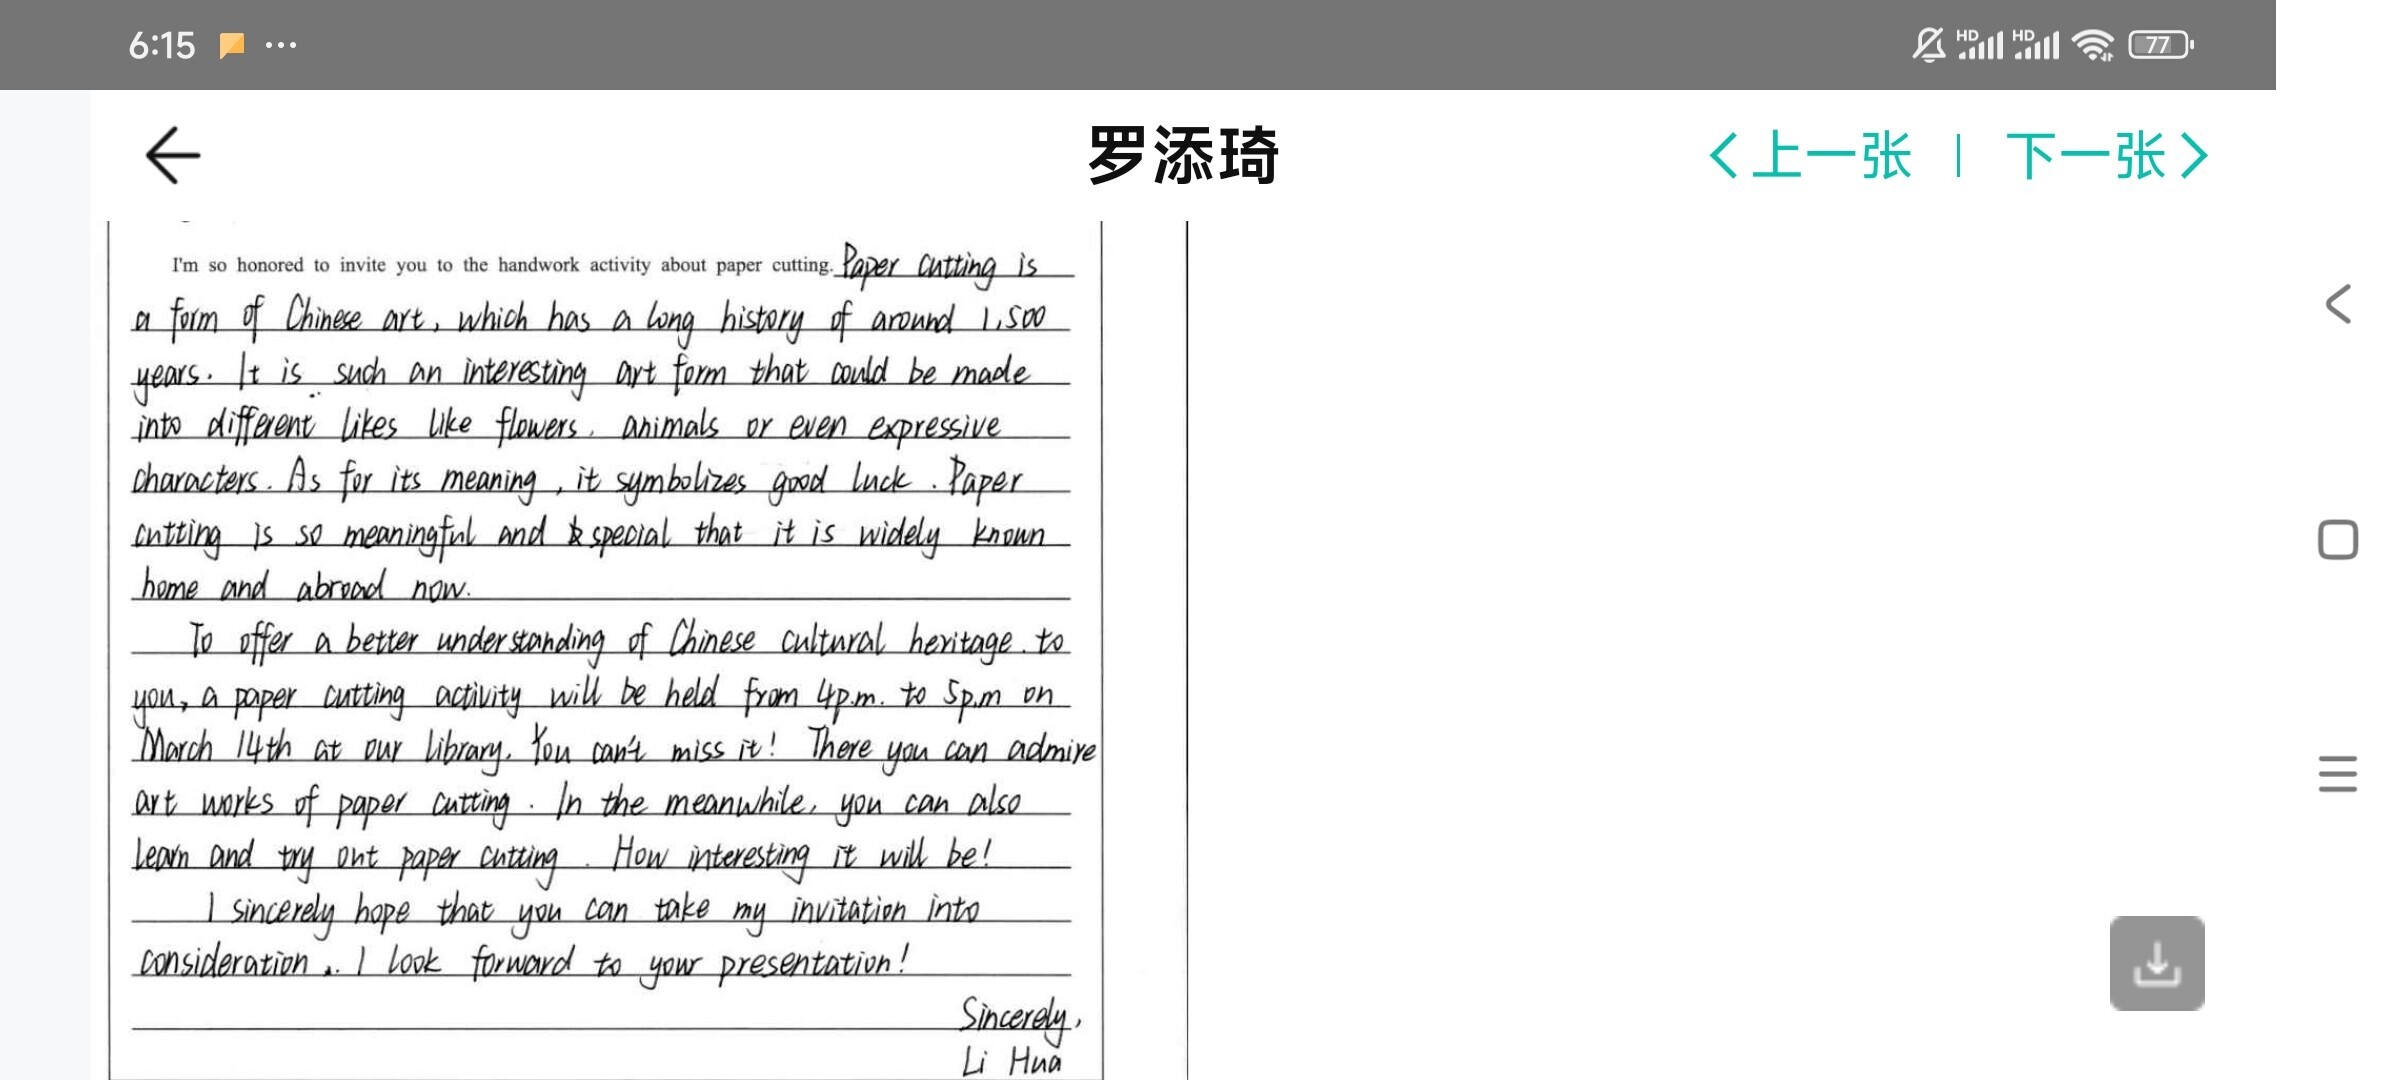 6:15
HD HD 77
罗添琦
上一张 | 下一张
I'm so honored to invite you to the handwork activity about paper cutting. Paper cutting is
a form of Chinese art, which has a long history of around 1,500
years. It is such an interesting art form that could be made
into different likes like flowers, animals or even expressive
characters. As for its meaning, it symbolizes good luck. Paper
cutting is so meaningful and special that it is widely known
home and abroad now.
To offer a better understanding of Chinese cultural heritage. to
you, a paper cutting activity will be held from 4p.m. to 5p.m on
March 14th at our library. You can't miss it! There you can admire
art works of paper cutting. In the meanwhile, you can also
learn and try out paper cutting. How interesting it will be!
I sincerely hope that you can take my invitation into
consideration. I look forward to your presentation!
Sincerely,
Li Hua